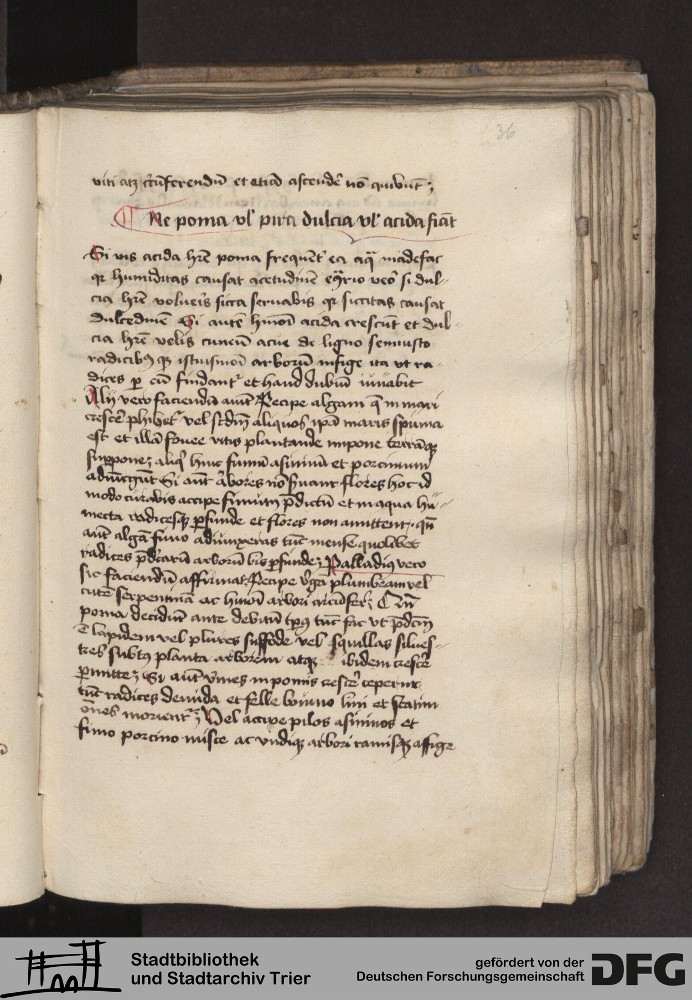 36
viti atq circumferendū et etiā ascendē nō quibūt ;
¶ Ne poma vl' pira dulcia vl' acida fiāt
Si vis acida hr̄e poma frequēt' ea aq̄ madefac
qr humiditas causat acetudinēm eius si dul-
cia hr̄e volueris sicca seruabis qr siccitas causat
dulcedinēm Si autē hmōi acida crescūt et dul-
cia hr̄e velis cuneū acue de ligno semiusto
radicibꝰqꝫ istiusmōi arborum infige ita vt ra-
dices ꝑ eū findant' et haud dubiū iuuabit
Alij vero faciendū aiūt Recipe algam q̄ in mari
crescē vel scdm̄ aliquos ip̄a maris spuma
est et illā fouee vitis plantande impone terrāqꝫ
suppone; alij huic fimū asininū et porcinum
adiūgūt Si aūt arbores nō flores hoc
modo curabis accipe fimum p̄dictū et in aqua hu-
mecta radicesqꝫ ꝑfunde et flores non amittent
aūt algā fimo adiunxeras tūc mense quolibet
radices p̄dcārū arborū bis ꝑfundeꝫ Palladiꝰ vero
sic faciendū affirmat Recipe plumbeam vel
cutē serpentinā ac hmōi arbori ¶
poma decidūt ante debitū tp̄us tūc fac vt p̄dcm̄
ē lapidem vel plures suffode vel squillas silues-
tres subtꝰ planta arborem atqꝫ ibidem crescē
ꝑmitteꝫ Si aūt vmes in pomis crescē ceperint
tūc radices denuda et felle bouino lini et statim
om̄es morient' ; Vel accipe pilos asininos et
fimo porcino misce ac vndiqꝫ arbori ramisqꝫ affige
Stadtbibliothek
und Stadtarchiv Trier
gefördert von der
Deutschen Forschungsgemeinschaft
DFG